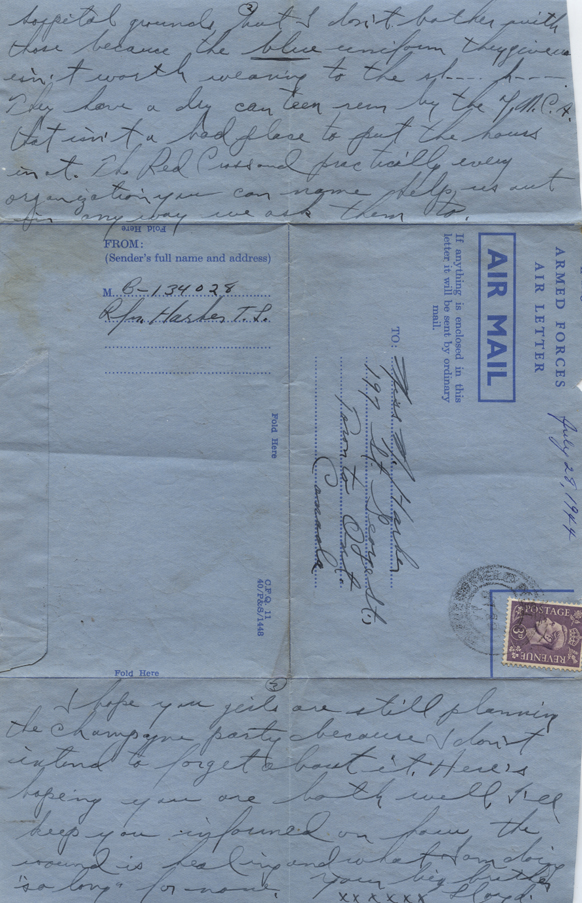 hospital grounds, but I don't bother with
those because the blue uniform they give us
isn't worth wearing to the sh-- h----.
They have a dry canteen run by the Y.M.C.A.
that isn't a bad place to put the hours
in at. The Red Cross and practically every
organization you can name help us out
in any way we ask them to.
Fold Here
FROM:
(Sender's full name and address)
M B-134028
Rfn. Harker T. L.
Fold Here
C.F.Q. 11
40/P&S/1448
Fold Here
ARMED FORCES
AIR LETTER
July 29, 1944
AIR MAIL
If anything is enclosed in this
letter it will be sent by ordinary
mail.
TO:
Miss M. Harker
197 St. George St.
Toronto Ont.
Canada
POSTAGE
3D
REVENUE
3
I hope you girls are still planning
the champagne party because I don't
intend to forget about it. Here's
hoping you are both well, I'll
keep you informed on how the
wound is healing and what I am doing
"so long" for now, Your big brother
xxxxxx Lloyd.